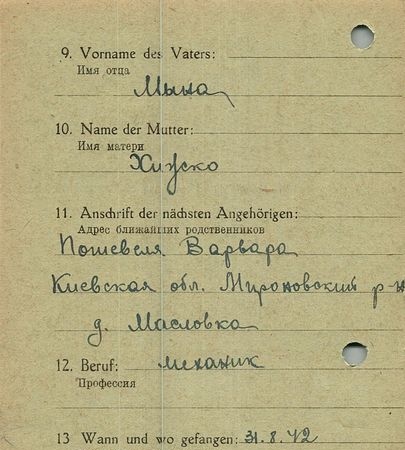 9. Vorname des Vaters:
Имя отца
Мына
10. Name der Mutter:
Имя матери
Хижско
11. Anschrift der nächsten Angehörigen:
Адрес ближайших родственников
Пошевеля Варвара
Киевская обл. Мироновский р-н
д. Масловка
12. Beruf: механик
Профессия
13 Wann und wo gefangen: 31.8.42